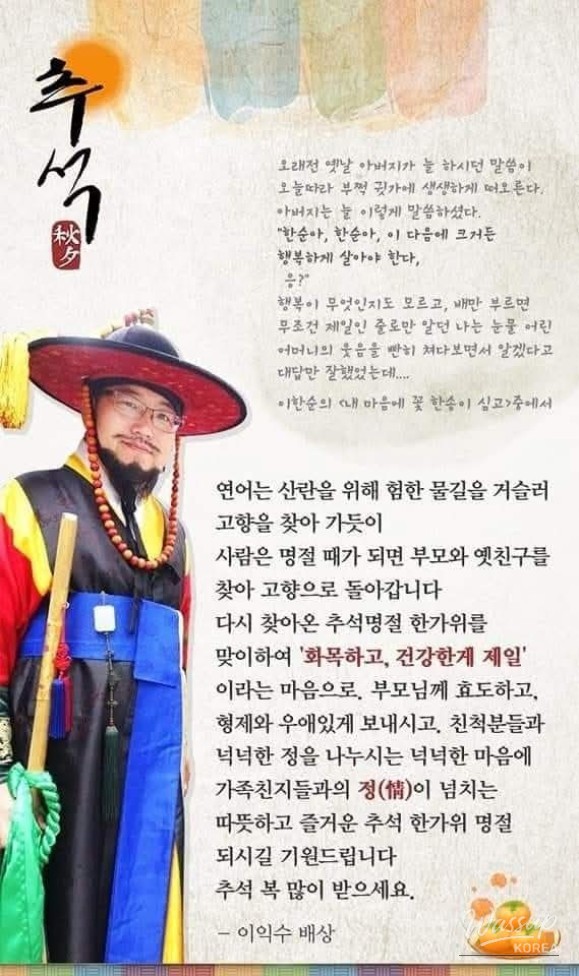 추석
秋夕
오래전 옛날 아버지가 늘 하시던 말씀이
오늘따라 부쩍 귓가에 생생하게 떠오른다.
아버지는 늘 이렇게 말씀하셨다.
"한순아, 한순아, 이 다음에 크거든
행복하게 살아야 한다,
응?"
행복이 무엇인지도 모르고, 배만 부르면
무조건 제일인 줄로만 알던 나는 눈물 어린
어머니의 웃음을 빤히 쳐다보면서 알겠다고
대답만 잘했었는데....
이한순의 <내 마음에 꽃 한송이 심고>중에서
연어는 산란을 위해 험한 물길을 거슬러
고향을 찾아 가듯이
사람은 명절 때가 되면 부모와 옛친구를
찾아 고향으로 돌아갑니다
다시 찾아온 추석명절 한가위를
맞이하여 '화목하고, 건강한게 제일'
이라는 마음으로. 부모님께 효도하고,
형제와 우애있게 보내시고. 친척분들과
넉넉한 정을 나누시는 넉넉한 마음에
가족친지들과의 정(情)이 넘치는
따뜻하고 즐거운 추석 한가위 명절
되시길 기원드립니다
추석 복 많이 받으세요.
- 이익수 배상
Wassup
KOREA